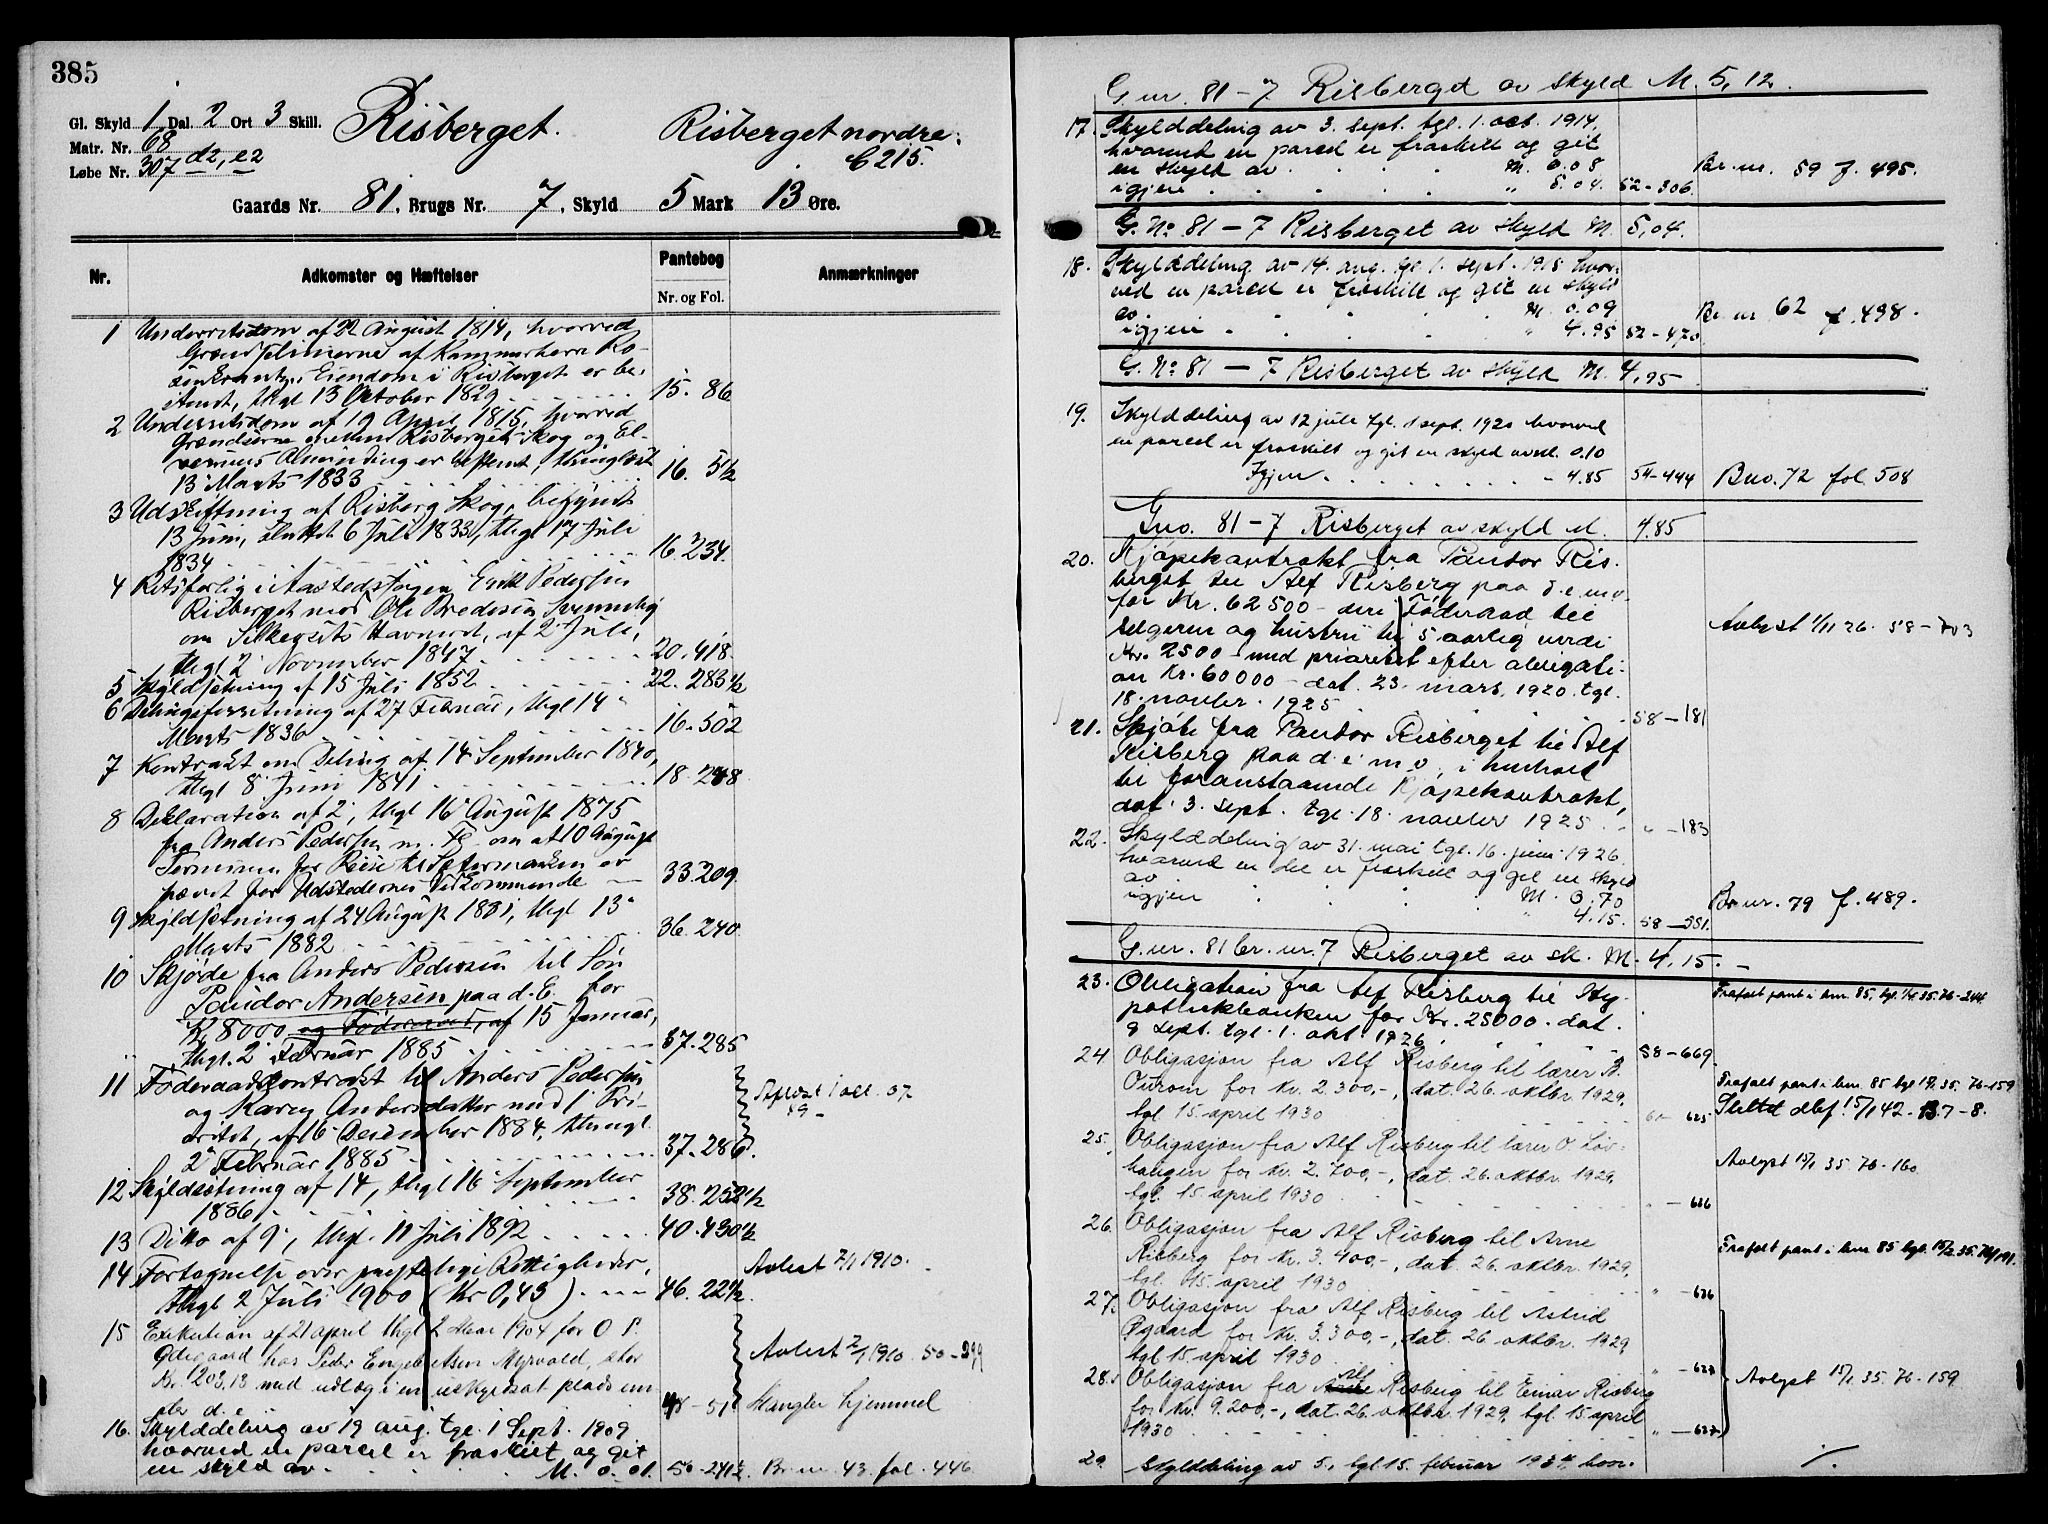 385
Gl. Skyld 1 Dal. 2 Ort 3 Skill.
Matr. Nr. 68
Løbe Nr. 307 d2, e2
Risberget.
Risberget nordre.
C 215.
Gaards Nr. 81, Brugs Nr. 7, Skyld 5 Mark 13 Øre.
Nr. Adkomster og Hæftelser Pantebog Anmærkninger
Nr. og Fol.
1 Underretsdom af 22 August 1814, hvorved
Grændselinierne af Kammerherre Ro-
Eiendom i Risberget er be-
stemt, thgl 13 October 1829 15. 86
2 Underretsdom af 19 April 1815, hvorved
Grændserne mellem Risberget Skog og El-
verums Alminding er bestemt, thinglæst
13 Marts 1833 16. 5 1/2
3 Udskiftning af Risberg Skog, begyndt
13 Juni, sluttet 6 Juli 1833, thgl 17 Juli
1834 16. 234.
4 Retsforlig i Aastedssagen Erik Pedersen
Risberget mod Ole Bredesen
om Havneret, af 2 Juli,
thgl 2 November 1847 20. 418.
5 Skyldsetning af 15 Juli 1852 22. 283 1/2
6 Delingsforretning af 27 Februar, thgl 14
Marts 1836 16. 502
7 Kontrakt om Deling af 14 September 1840,
thgl 8 Juni 1841 18. 248.
8 Deklaration af 2, thgl 16 August 1875
fra Anders Pedersen m. Fl. om at 10 August
Terminen for Reise til Sætermarken er
prævet for Udstedernes Vedkommende 33. 209.
9 Skyldsetning af 24 August 1881, thgl 13
Marts 1882 36. 240.
10 Skjøde fra Anders Pedersen til Søn
Pauder Andersen paa d. E. for
Kr 8000 og Føderaad, af 15 Januar,
thgl. 2 Februar 1885 37. 285
11 Føderaadskontrakt til Anders Pedersen
og Karen Andersdatter med 1 Pri-
oritet, af 16 December 1884, thingl.
2 Februar 1885 37. 286.
12 Skyldsætning af 14, thgl 16 September
1886 38. 252 1/2
13 Ditto af 9, thgl. 11 Juli 1892 40. 430 1/2
14 Fortegnelse over præstelige Rettigheder,
thgl 2 Juli 1900 (Kr 0,43) 46. 22 1/2. Avlest 2/1 1910.
15 Exekution af 21 april thgl 2 Mai 1904 for O P.
Ødegaard hos Peder Engebretsen Myrvold, stor
Kr. 203.13 med udlæg i en uskyldsat plads un-
der d. e 48 - 51 Mangler hjemmel
Avlest 2/1 1910. 50 - 299
16. Skylddeling av 19 aug. tgl. 1 Sept. 1909
hvorved en parcel er fraskilt og git
en skyld av M. 0.01. 50-241 1/2. Br. nr. 43. fol. 446
G. nr. 81 - 7 Risberget av skyld M. 5,12.
17. Skylddeling av 3. sept. tgl. 1. oct. 1914,
hvorved en parcel er fraskilt og git
en skyld av M. 0.08
igjen " 5.04. 52 - 306. Br. nr. 59 f. 495.
G. No 81 - 7 Risberget av skyld M. 5,04.
18. Skylddeling av 14. aug. tgl. 1. sept. 1915 hvor-
ved en parcel er fraskilt og git en skyld
av M. 0.09
igjen " 4.95 52 - 470 Br. nr 62 f. 498.
G. No 81 - 7 Risberget av skyld M. 4,95
19. Skylddeling av 12 juli tgl. 1 sept. 1920 hvorved
en parcel er fraskilt og git en skyld av M. 0.10
Igjen - 4.85 54 - 444 Bno. 72 fol. 508
Gno. 81 - 7 Risberget av skyld M. 4.85
20. Kjøpekontrakt fra Pauder Ris-
berget til Alf Risberg paa d.e.m.v.
for Kr. 62 500 - derav Føderaad til
selgeren og hustru til 5 aarlig verdi
Kr. 2500 - med prioritet efter obligati-
on Kr. 60000 - dat. 23. mars. 1920. tgl.
18. novbr. 1925 58 - 181 Avlyst 1/11 26. 58 - 703
21. Skjøte fra Pauder Risberget til Alf
Risberg paa d.e.m.v., i henhold
til foranstaaende Kjøpekontrakt,
dat. 3. sept. tgl. 18. novbr 1925 " - 183
22. Skylddeling av 31. mai tgl. 16. juni 1926
hvorved en del er fraskilt og git en skyld
av M. 0.70
igjen " 4.15. 58 - 551. Br. nr. 79 f. 489.
G. nr. 81 br. nr. 7 Risberget av sk. M. 4,15.
23. Obligation fra Alf Risberg til Hy-
potekbanken for Kr. 25000. dat.
9 sept. tgl. 1. okt. 1926. 58 - 669 Frafalt pant i bnr. 85,
24 Obligasjon fra Alf Risberg til lærer
for kr. 2.300,-, dat. 26. oktbr. 1929,
tgl 15 april 1930 60 - 625 Frafalt pant i bnr. 85 tgl 15/1 35. 76 - 159
Slettet dbf. 15/1 42 - 137 - 8.
25. Obligasjon fra Alf Risberg til lærer O. Løv-
haugen for kr. 2.700,-, dat. 26. oktbr. 1929,
tgl. 15. april 1930 " - 626 Avlyst 15/1 35. 76 - 160
26. Obligasjon fra Alf Risberg til Arne
Risberg for kr. 3.400,-, dat. 26. oktbr. 1929,
tgl. 15. april 1930 " - 626 Frafalt pant i bnr 85 tgl. 15/2 35.
27. Obligasjon fra Alf Risberg til Astrid
Øgaard for kr. 3.300,-, dat. 26. oktbr. 1929,
tgl 15. april 1930 " - 627
28. Obligasjon fra Alf Risberg til Einar Risberg
for kr. 9.200,-, dat. 26. oktbr. 1929, tgl. 15 april
1930 " - 627 Avlyst 15/1 35. 76 - 159.
29. Skylddeling av 5., tgl. 15. februar 1934 hvor-